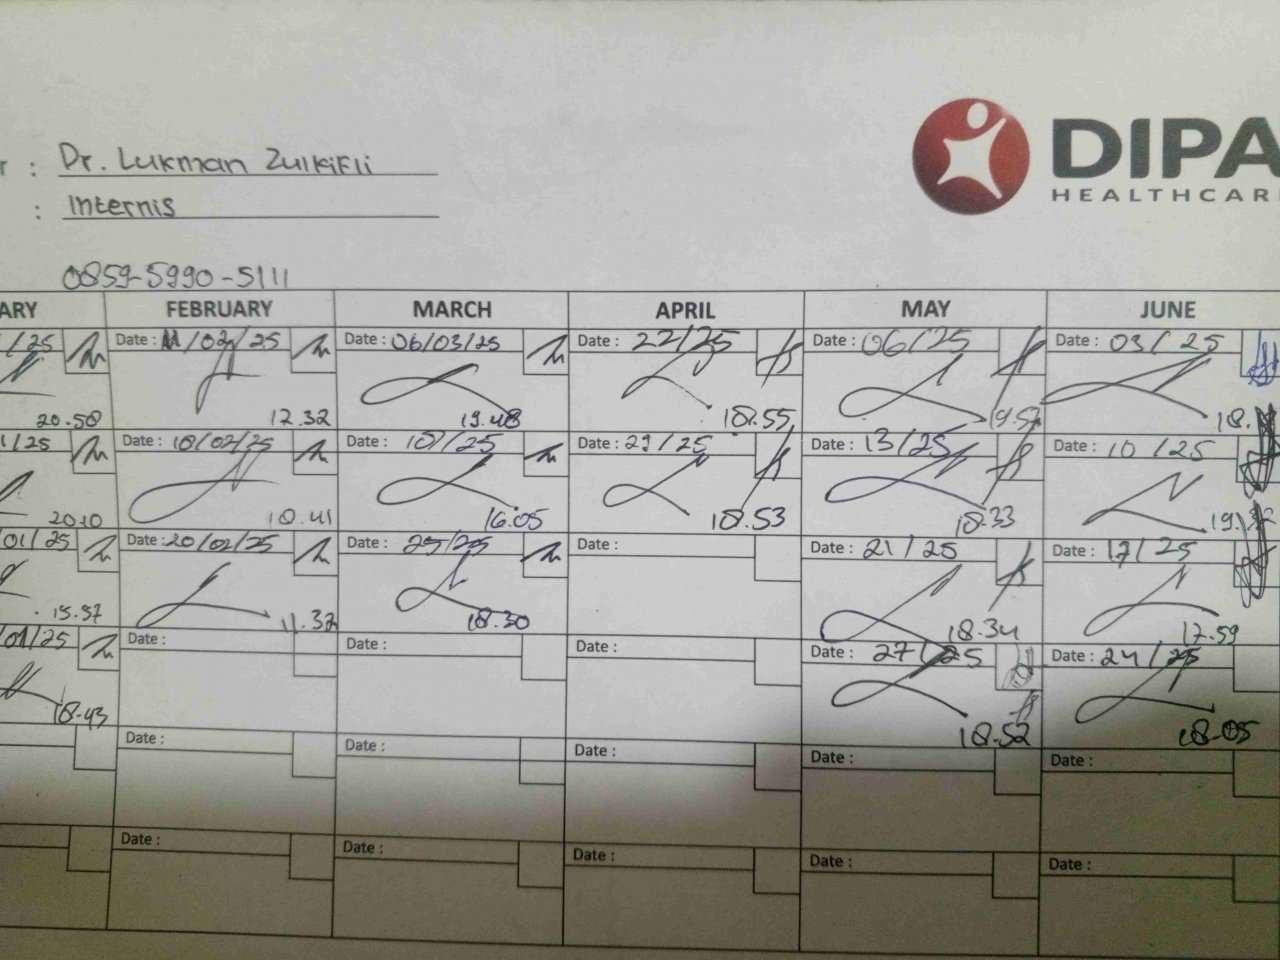 : Dr. Lukman Zulkifli
: Internis
DIPA
HEALTHCAR
0859-5990-5111
ARY FEBRUARY MARCH APRIL MAY JUNE
/25 Date : 11/02/25 Date : 06/03/25 Date : 22/25 Date : 06/25 Date : 03/25
20.58 12.32 19.48 18.55 19.57 18.
1/25 Date : 18/02/25 Date : Date : 29/25 Date : 13/25 Date : 10/25
20.10 18.41 16.05 18.53 18.33 19.
01/25 Date : 20/02/25 Date : 25/25 Date : Date : 21/25 Date : 17/25
15.37 11.32 18.30 18.34 17.59
/01/25 Date : Date : Date : Date : 27/25 Date : 24/25
18.43 18.52 18.05
Date : Date : Date : Date : Date :
Date : Date : Date : Date : Date :